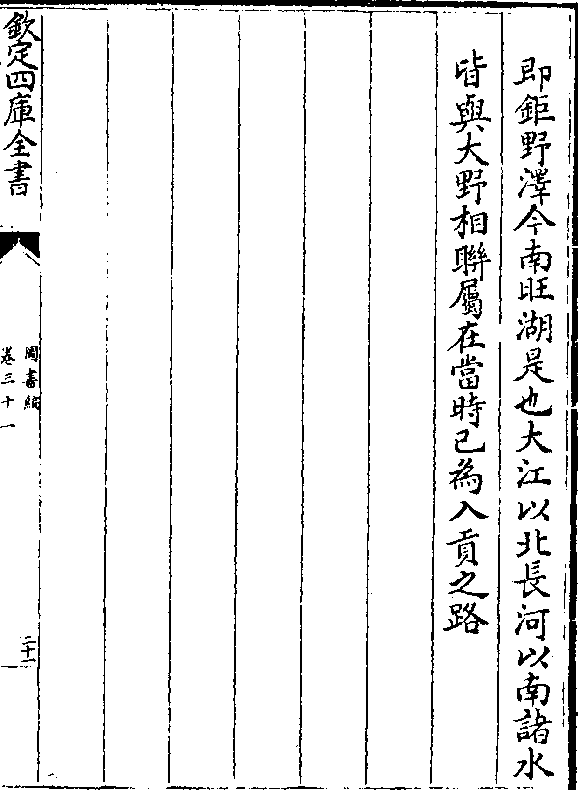 即鉅野澤今南旺湖是也大江以北長河以南諸水
皆與大野相聯屬在當時已為入貢之路
欽定四庫全書
圖書編
卷三十一
二十一